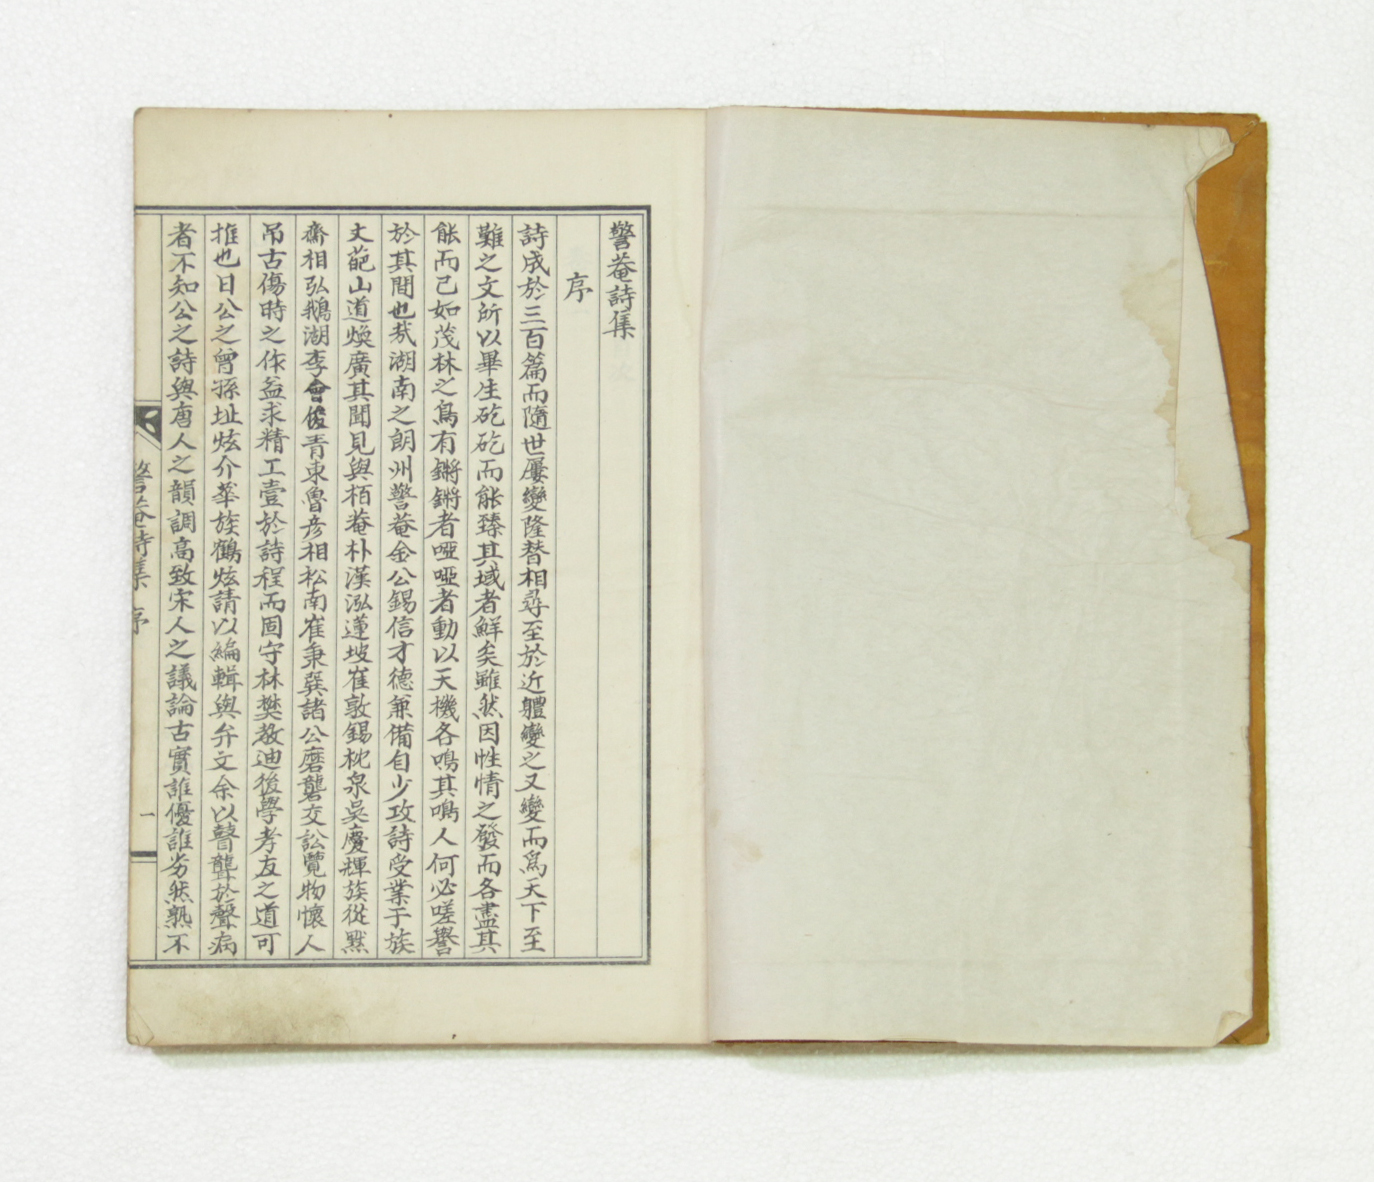 警菴詩集
序
詩成於三百篇而隨世屢變隆替相尋至於近軆變之又變而爲天下至
難之文所以畢生矻矻而能臻其域者鮮矣雖然因性情之發而各盡其
能而已如茂林之鳥有鏘鏘者啞啞者動以天機各鳴其鳴人何必嗟譽
於其間也哉湖南之朗州警菴金公錫信才德兼備自少攻詩受業于族
丈葩山道煥廣其聞見與栢菴朴漢泓蓮坡崔敦錫枕泉吳慶輝族從默
齋相弘鵝湖李會俊青東魯彦相松南崔秉巽諸公磨礱交訟覽物懷人
吊古傷時之作益求精工壹於詩程而固守林樊敎迪後學孝友之道可
推也日公之曾孫址炫介華族鶴炫請以編輯與弁文余以瞽聾於聲病
者不知公之詩與唐人之韻調高致宋人之議論古實誰優誰劣然熟不
警菴詩集 序
一